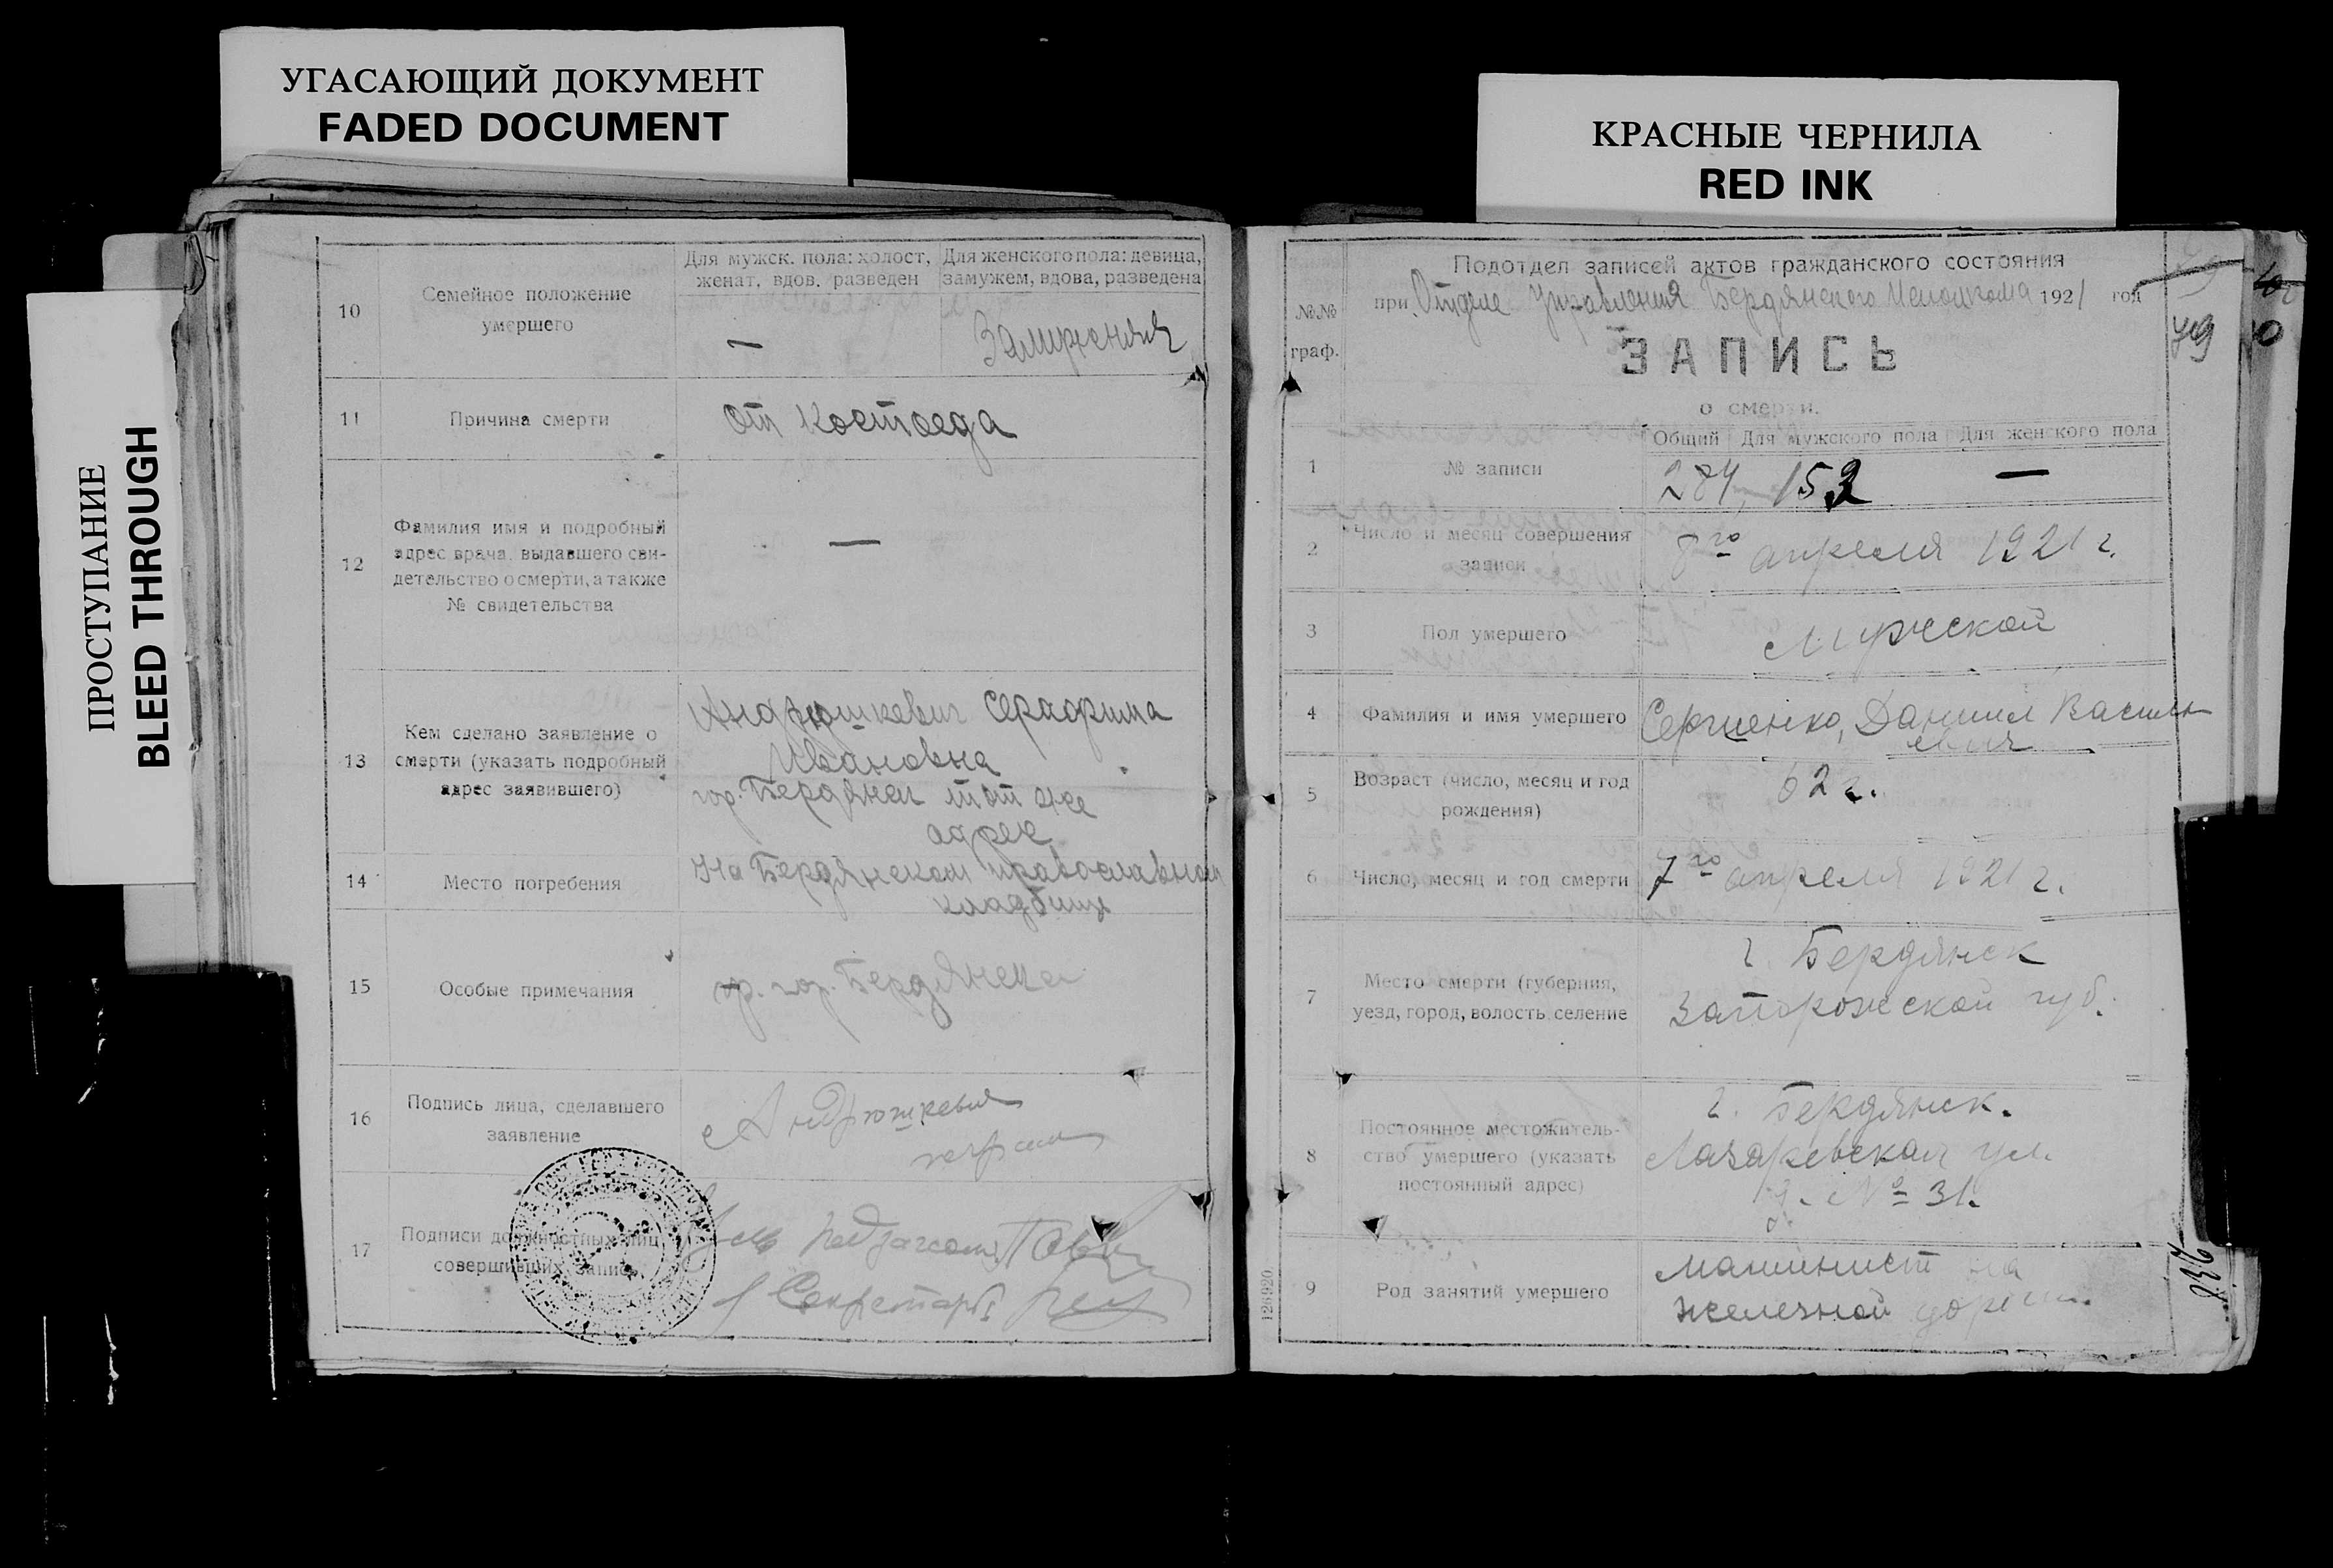 УГАСАЮЩИЙ ДОКУМЕНТ
FADED DOCUMENT
КРАСНЫЕ ЧЕРНИЛА
RED INK
ПРОСТУПАНИЕ
BLEED THROUGH
10
Семейное положение
умершего
Для мужск. пола: холост,
женат, вдов, разведен
Для женского пола: девица,
замужем, вдова, разведена
—
Замужняя
11
Причина смерти
От Костоеда
12
Фамилия имя и подробный
адрес врача, выдавшего сви-
детельство о смерти, а также
№ свидетельства
—
13
Кем сделано заявление о
смерти (указать подробный
адрес заявившего)
Андрюшкевич Серафима
Ивановна
гор. Бердянск тот же
адрес
14
Место погребения
На Бердянском православном
кладбище
15
Особые примечания
гр. гор. Бердянска
16
Подпись лица, сделавшего
заявление
Андрюшкевич
17
Подписи должностных лиц,
совершивших запись
Секретарь
№№
граф.
Подотдел записей актов гражданского состояния
при Отделе Управления Бердянского Исполкома 1921 год
79
ЗАПИСЬ
о смерти.
Общий Для мужского пола Для женского пола
1
№ записи
284 153 —
2
Число и месяц совершения
записи
8го апреля 1921 г.
3
Пол умершего
Мужской
4
Фамилия и имя умершего
Сергиенко, Даниил Василь
евич
5
Возраст (число, месяц и год
рождения)
62 г.
6
Число, месяц и год смерти
7го апреля 1921 г.
7
Место смерти (губерния,
уезд, город, волость, селение
г. Бердянск
Запорожской губ.
8
Постоянное местожитель-
ство умершего (указать
постоянный адрес)
г. Бердянск.
Лазаревская ул.
д. № 31.
9
Род занятий умершего
машинист на
железной дороге.
126920